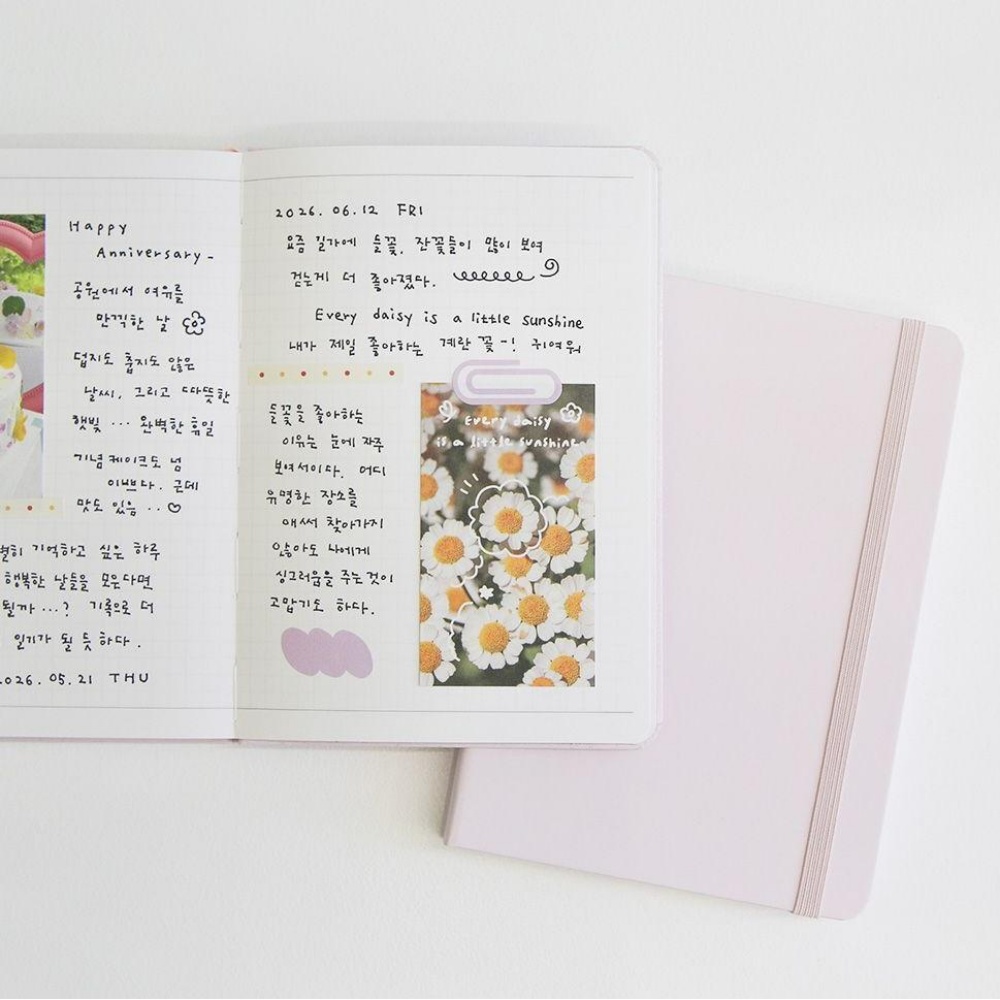 Happy
Anniversary -
공원에서 여유를
만끽한 날
덥지도 춥지도 않은
날씨, 그리고 따뜻한
햇빛 ... 완벽한 휴일
기념 케이크도 넘
이쁘다. 근데
맛도 있음 .. ♡
별히 기억하고 싶은 하루
행복한 날들을 모은다면
될까 ...? 기록으로 더
일기가 될 듯 하다.
2026. 05. 21 THU
2026. 06. 12 FRI
요즘 길가에 들꽃, 잔꽃들이 많이 보여
걷는게 더 좋아졌다.
Every daisy is a little sunshine
내가 제일 좋아하는 계란 꽃 -! 귀여워
들꽃을 좋아하는
이유는 눈에 자주
보여서이다. 어디
유명한 장소를
애써 찾아가지
않아도 나에게
싱그러움을 주는 것이
고맙기도 하다.
Every daisy
is a little sunshine